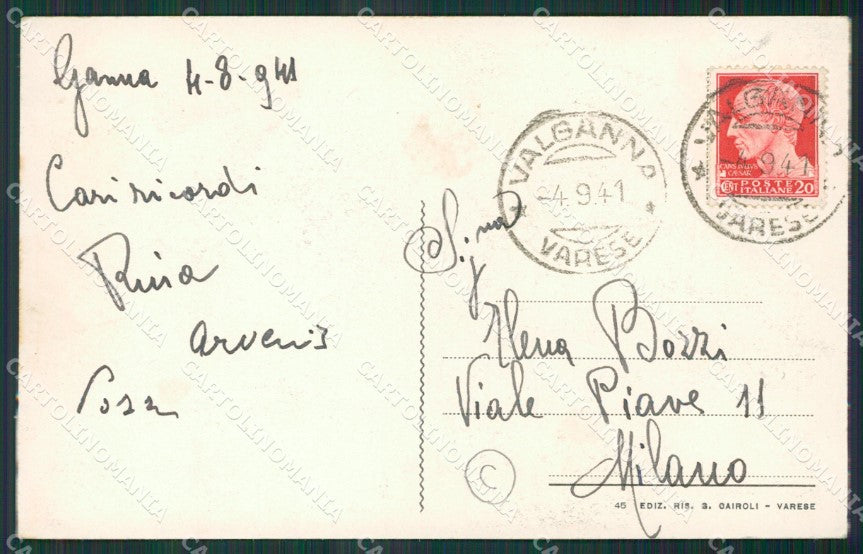 Ganna 4-8-941
Cari ricordi
Rina
Rosa
VALGANNA
-4.9.41
VARESE
VALGANNA
-4.9.41
VARESE
CAESAR
POSTE
ITALIANE 20
Sig.na
Elena Bozzi
Viale Piave 11
Milano
C
45 EDIZ. RIS. G. CAIROLI - VARESE
CARTOLINOMANIA